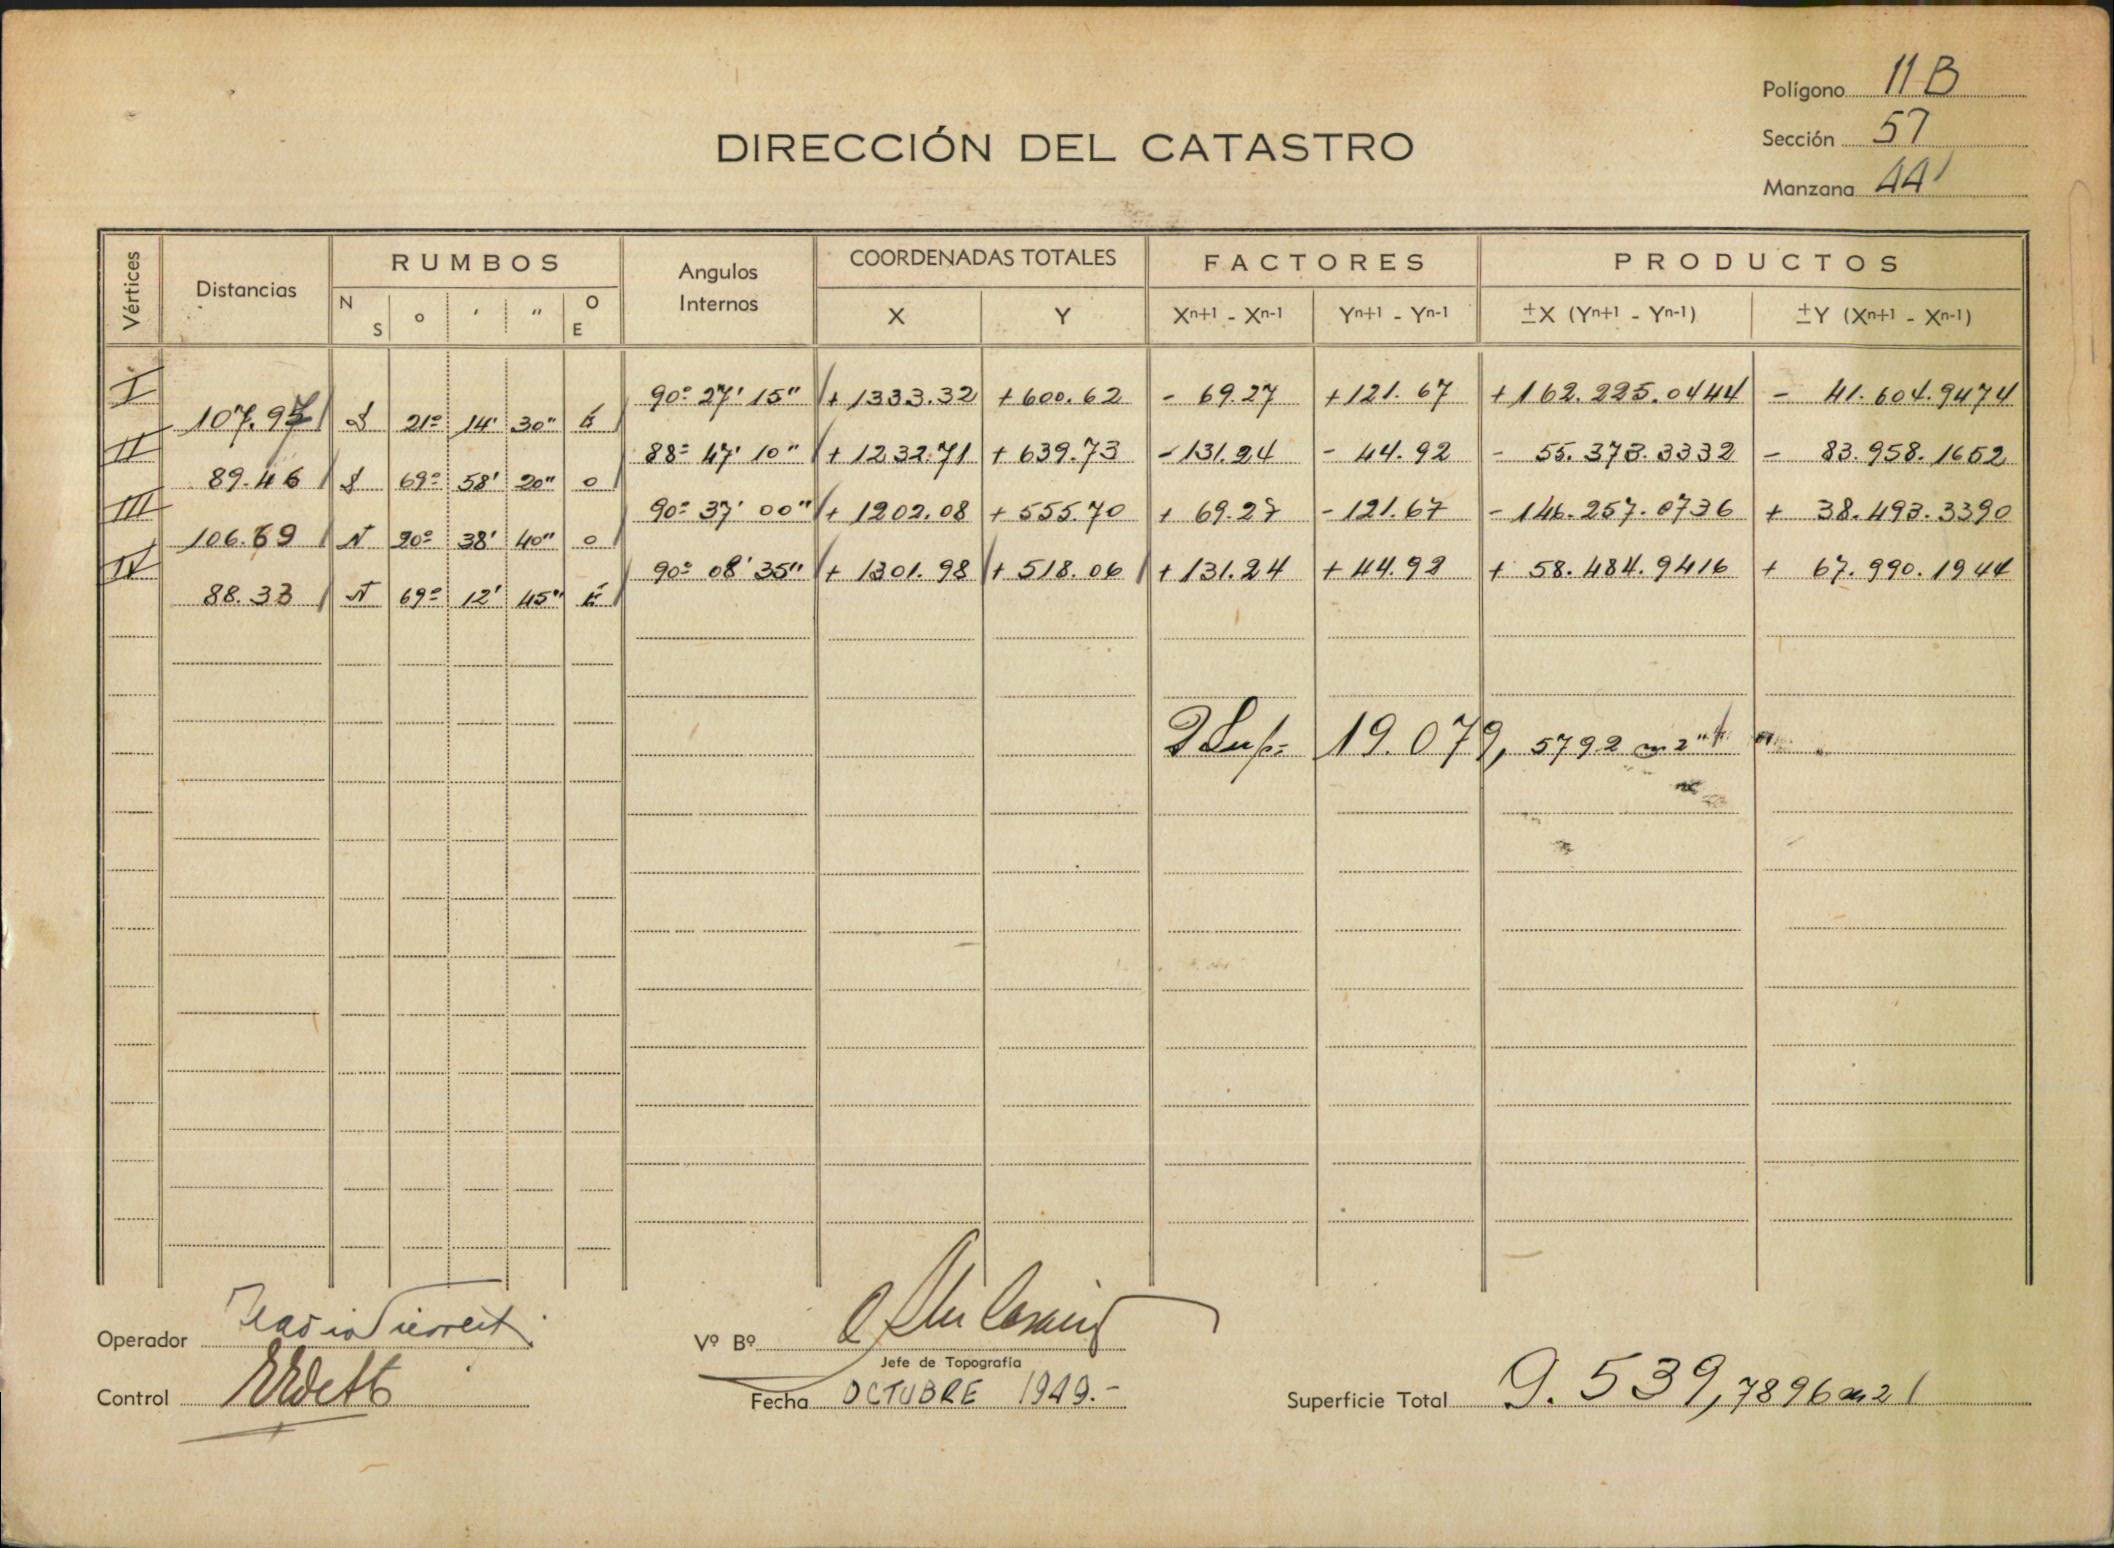 Polígono 11 B
DIRECCIÓN DEL CATASTRO
Sección 57
Manzana 44
Vértices Distancias RUMBOS N S o ' " O E Angulos Internos COORDENADAS TOTALES X Y FACTORES Xn+1 - Xn-1 Yn+1 - Yn-1 PRODUCTOS ±X (Yn+1 - Yn-1) ±Y (Xn+1 - Xn-1)
I 90º 27' 15" + 1333.32 + 600.62 - 69.27 + 121.67 + 162.225.0444 - 41.604.9474
107.97 S 21º 14' 30" E
II 88º 47' 10" + 1232.71 + 639.73 - 131.24 - 44.92 - 55.373.3332 - 83.958.1652
89.46 S 69º 58' 20" O
III 90º 37' 00" + 1202.08 + 555.70 + 69.27 - 121.67 - 146.257.0736 + 38.493.3390
106.69 N 20º 38' 40" O
IV 90º 08' 35" + 1301.98 + 518.06 + 131.24 + 44.92 + 58.484.9416 + 67.990.1944
88.33 N 69º 12' 45" E
2 Sup= 19.079,5792 m2
Operador
Vº Bº
Jefe de Topografía
Control
Fecha OCTUBRE 1949.-
Superficie Total 9.539,7896 m2